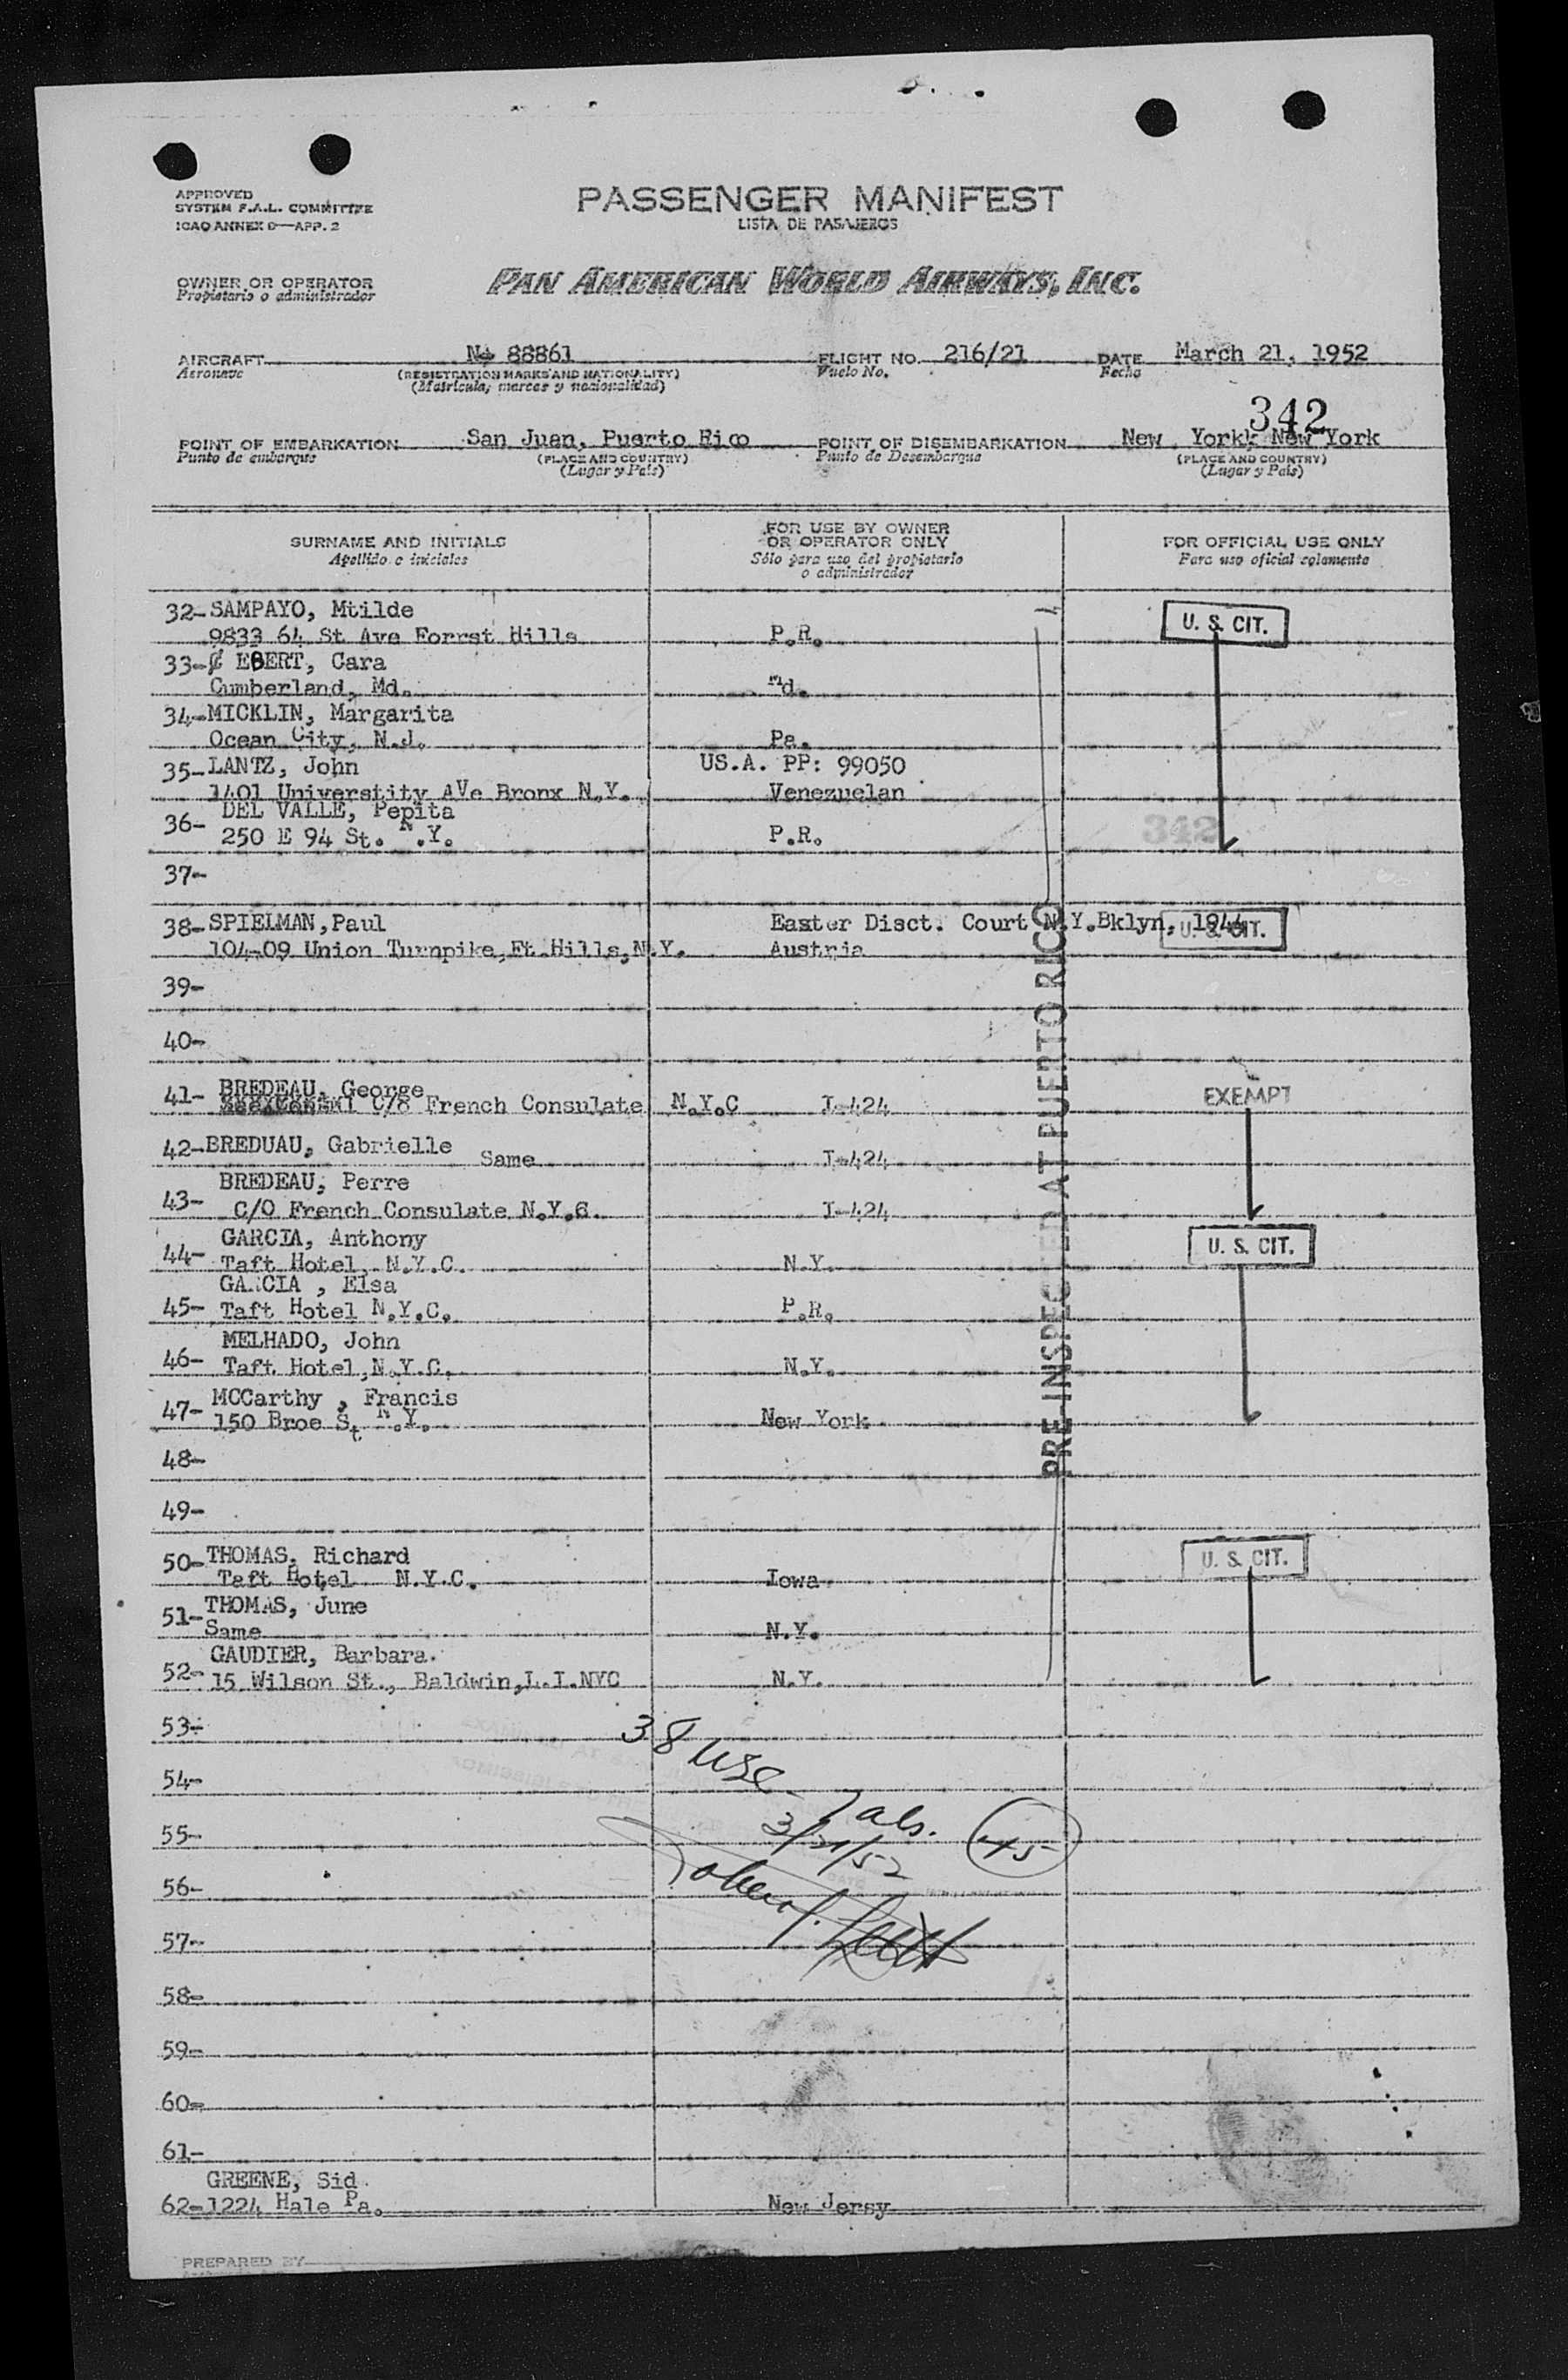 APPROVED
SYSTEM F.A.L. COMMITTEE
ICAO ANNEX 9—APP. 2
PASSENGER MANIFEST
LISTA DE PASAJEROS
OWNER OR OPERATOR
Propietario o administrador
PAN AMERICAN WORLD AIRWAYS, INC.
AIRCRAFT N 88861 FLIGHT NO. 216/21 DATE March 21, 1952
Aeronave (REGISTRATION MARKS AND NATIONALITY) Vuelo No. Fecha
(Matrícula, marcas y nacionalidad)
342
POINT OF EMBARKATION San Juan, Puerto Rico POINT OF DISEMBARKATION New Yorkk New York
Punto de embarque (PLACE AND COUNTRY) Punto de Desembarque (PLACE AND COUNTRY)
(Lugar y País) (Lugar y País)
SURNAME AND INITIALS
Apellido e iniciales
FOR USE BY OWNER
OR OPERATOR ONLY
Sólo para uso del propietario
o administrador
FOR OFFICIAL USE ONLY
Para uso oficial solamente
32- SAMPAYO, Mtilde U. S. CIT.
9833 64 St Ave Forrst Hills P.R.
33- EBERT, Cara
Cumberland, Md. Md.
34- MICKLIN, Margarita
Ocean City, N.J. Pa.
35- LANTZ, John US.A. PP: 99050
1401 Universtity AVe Bronx N.Y. Venezuelan
DEL VALLE, Pepita
36- 250 E 94 St. N.Y. P.R. 342
37-
38- SPIELMAN, Paul Easter Disct. Court N.Y.Bklyn, 1944 U. S. CIT.
104-09 Union Turnpike, Ft. Hills, N.Y. Austria
39-
40-
BREDEAU, George
41- C/o French Consulate N.Y.C I-424 EXEMPT
42- BREDUAU, Gabrielle
Same I-424
BREDEAU, Perre
43- C/O French Consulate N.Y.C. I-424
GARCIA, Anthony U. S. CIT.
44- Taft Hotel, N.Y.C. N.Y.
GARCIA , Elsa
45- Taft Hotel N.Y.C. P.R.
MELHADO, John
46- Taft Hotel, N.Y.C. N.Y.
47- MCCarthy , Francis
150 Broe St N.Y. New York
48-
49-
50- THOMAS, Richard U. S. CIT.
Taft Hotel N.Y.C. Iowa
51- THOMAS, June
Same N.Y.
GAUDIER, Barbara.
52- 15 Wilson St., Baldwin, L.I.NYC N.Y.
PRE-INSPECTED AT PUERTO RICO
53-
38 USC
54-
7 als. 45
55-
3/21/52
56-
57-
58-
59-
60-
61-
GREENE, Sid
62- 1224 Hale Pa. New Jersy
PREPARED BY